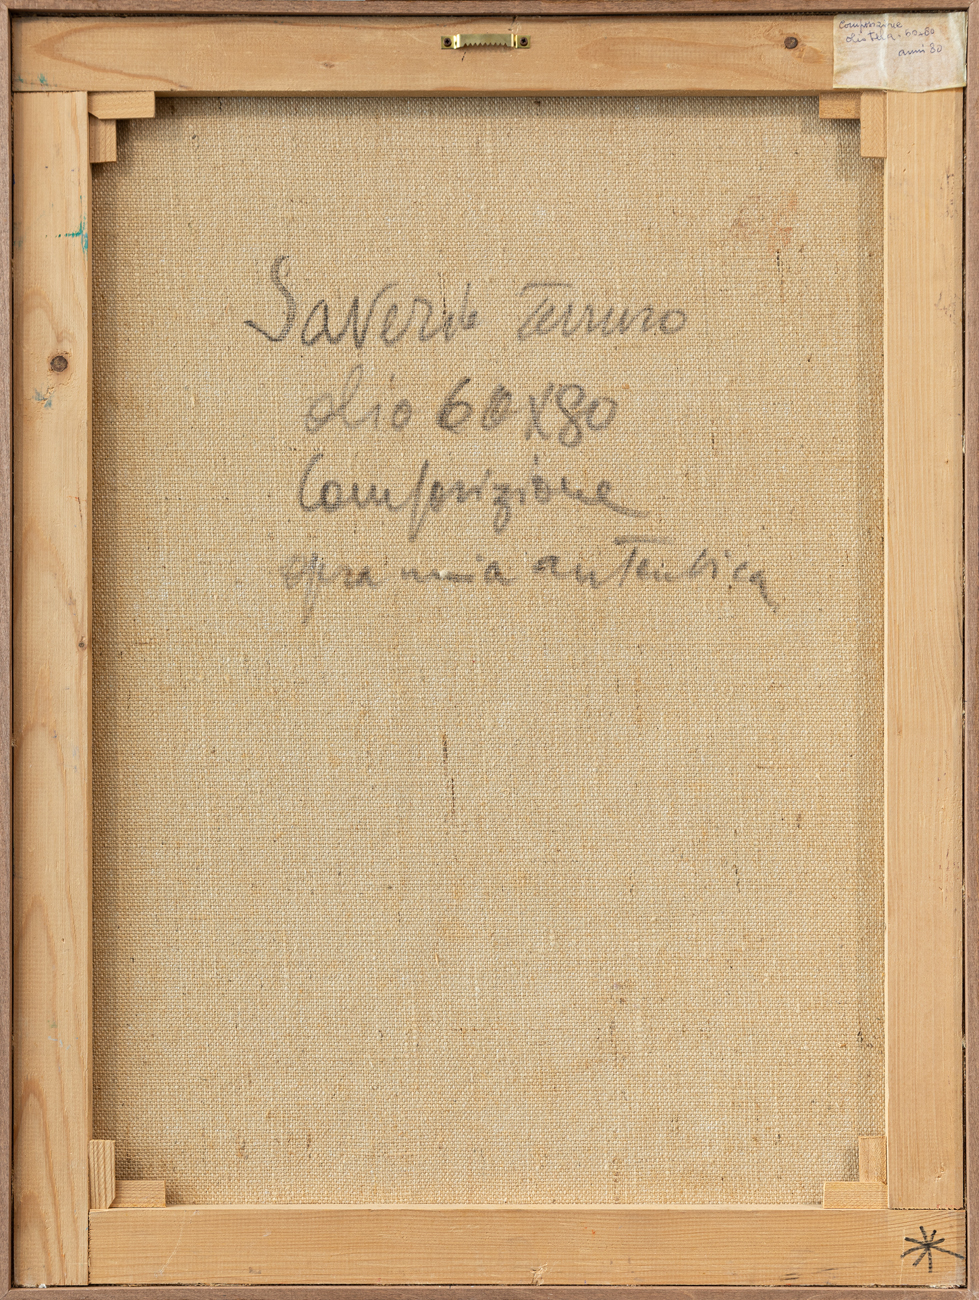 Composizione
olio tela 60x80
anni 80
Saverio Terruso
olio 60x80
Composizione
opera mia autentica